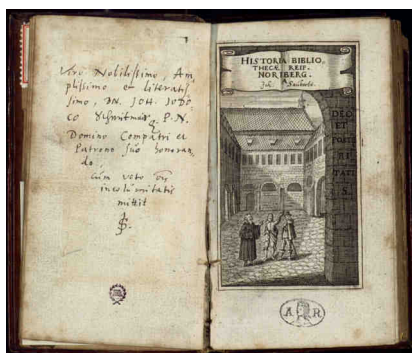 Viro Nobilissimo, Am
plissimo et literatis
simo, DN. JOH. JODO
CO Schmidmaier, P. N.
Domino Compatri et
Patrono suo honoran
do.
cum voto
incolumitatis
mittit
HISTORIA BIBLIO
THECÆ REIP.
NORIBERG.
Joh. Sauberti.
DEO
ET
POSTE
RI
TATI
S.
A R